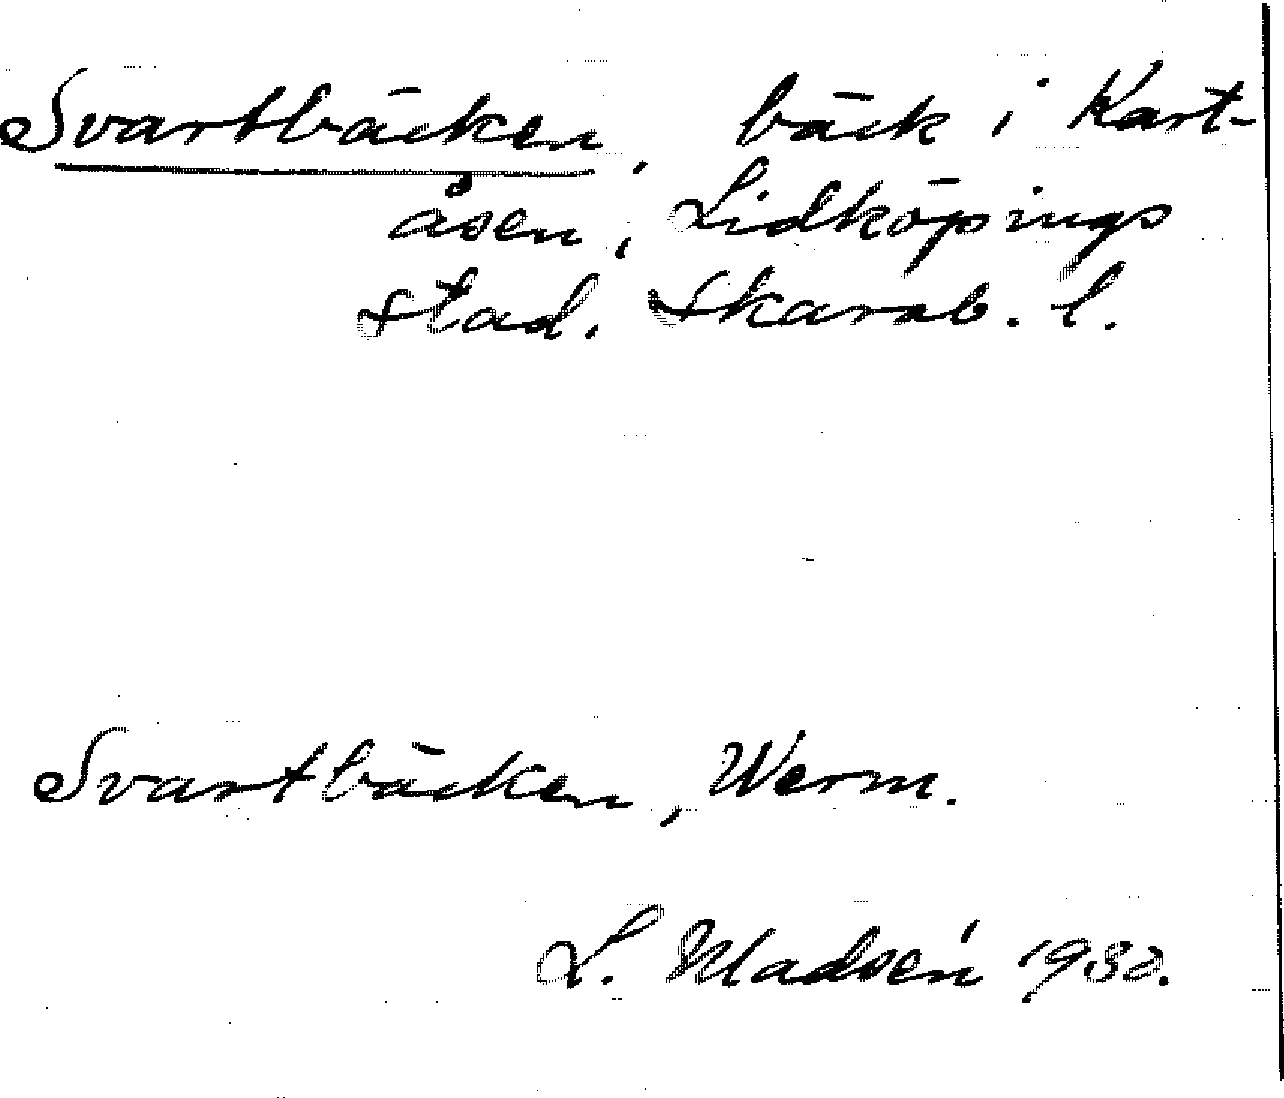 Svartbäcken, bäck i Kart-
åsen, Lidköpings
stad. Skarab. l.
Svartbäcken, Werm.
L. Madsén 1930.